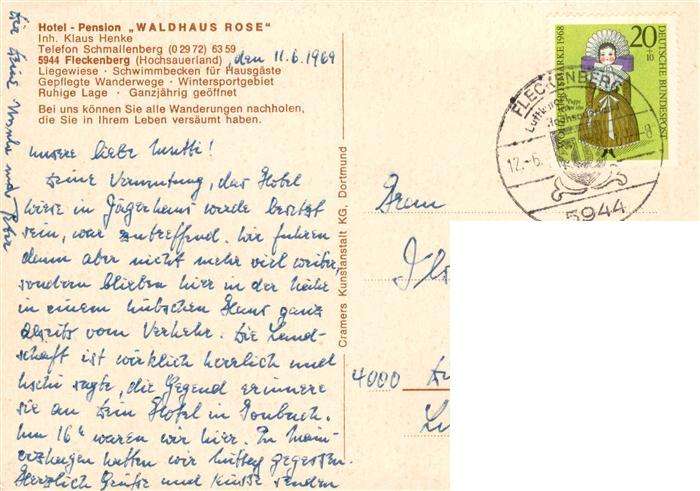 Hotel - Pension „WALDHAUS ROSE"
Inh. Klaus Henke
Telefon Schmallenberg (0 29 72) 63 59
5944 Fleckenberg (Hochsauerland) , den 11.6.1969
Liegewiese · Schwimmbecken für Hausgäste
Gepflegte Wanderwege · Wintersportgebiet
Ruhige Lage · Ganzjährig geöffnet
Bei uns können Sie alle Wanderungen nachholen,
die Sie in Ihrem Leben versäumt haben.
unsere liebe Mutti!
Deine Vermutung, das Hotel
Wiese in Jägerhaus werde besetzt
sein, war zutreffend. Wir fuhren
dann aber nicht mehr viel weiter,
sondern blieben hier in der Nähe
in einem hübschen Haus ganz
abseits vom Verkehr. Die Land-
schaft ist wirklich herrlich und
sagte, die Gegend erinnere
sie an Dein Hotel in
Um 16 waren wir hier. In
hatten wir Mittag gegessen.
Herzlich Grüße und Küsse senden
Dir Deine und Peter
Cramers Kunstanstalt KG, Dortmund
WOHLFAHRTSMARKE 1968
20
+10
DEUTSCHE BUNDESPOST
FLECKENBERG
12.-6.
-8
5944
4000